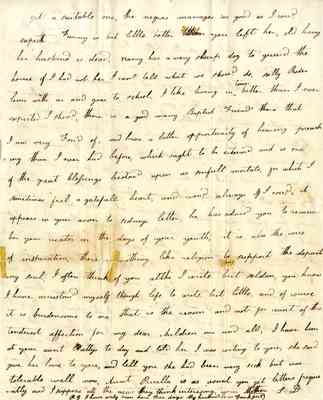 get a suitable one, the negroes manages as good as I could
expect Fanny is but little better than when you left her, old henry
her husband is dead. nanny has a very cheap dog to guard the
house if I had not her I can't tell what we should do, sally
lives with us and goes to school. I like living in town better than I ever
expected I should, there is a good many Baptist Friends there that
I am very Fond of, and have a better opportunity of hearing preach
ing than I ever had before, which ought to be esteemed and is one
of the great blessings bestowed upon us sinfull mortals, for which I
sometimes feel a gratefull heart, and would always if I could, it
appears in your answer to sedneys letter he has advised you to remem
ber your creator in the days of your youth, it is also the voice
of inspiration, there is nothing like religion to support the departing
soul, I often think of you altho I write but seldom, you know
I have accustomd myself through life to write but little, and of course
it is burdensome to me that is the reason and not for want of the
tenderest affection for my dear children one and all, I have been
at your aunt Pattys to day and told her I was writing to you, she said
give her love to you, and tell you she had been very sick but was
tolerable well now, Aunt is as usual you get letters frequen
tly and I suppose all the news they think interesting